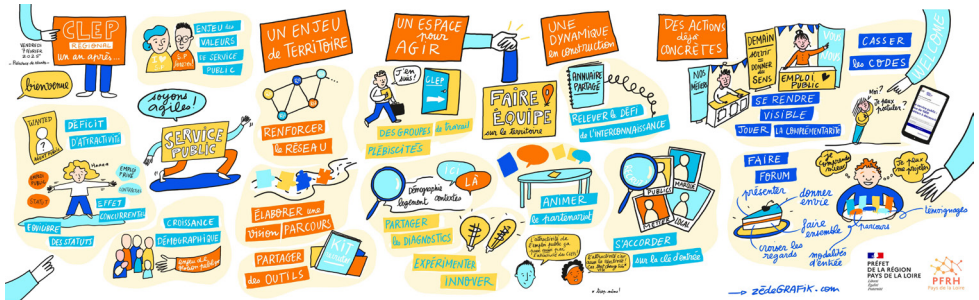 CLEP
RÉGIONAL
un an après...
VENDREDI
7 FÉVRIER
2025
bienvenue
WANTED
DÉFICIT
D'ATTRACTIVITÉ
EMPLOI
PUBLIC
STATUT
EMPLOI
PRIVÉ
EFFET
CONCURRENTIEL
ÉQUILIBRE
DES STATUTS
ENJEU des
VALEURS
LE SERVICE
PUBLIC
soyons
agiles!
SERVICE
PUBLIC
CROISSANCE
DÉMOGRAPHIQUE
UN ENJEU
de TERRITOIRE
RENFORCER
le RÉSEAU
ÉLABORER une
vision PARCOURS
PARTAGER
des OUTILS
KIT
UN ESPACE
pour
AGIR
J'en
suis!
CLEP
DES GROUPES de travail
PLÉBISCITÉS
ICI
LÀ
Démographie
logement contextes
PARTAGER
les DIAGNOSTICS
EXPÉRIMENTER
INNOVER
UNE
DYNAMIQUE
en construction
FAIRE
ÉQUIPE
sur le territoire
ANNUAIRE
PARTAGÉ
RELEVER LE DÉFI
de L'INTERCONNAISSANCE
ANIMER
le partenariat
PUBLICS
MÉTIER
LOCAL
S'ACCORDER
sur la clé d'entrée
DES ACTIONS
déjà
CONCRÈTES
NOS
MÉTIERS
DEMAIN
servir
=
DONNER
du
SENS
EMPLOI
PUBLIC
VOUS
SE RENDRE
VISIBLE
JOUER LA COMPLÉMENTARITÉ
CASSER
les CODES
WELCOME
Moi?
Je peux
postuler?
FAIRE
FORUM
présenter
donner
envie
faire
ensemble
croiser les
regards
modalités
d'entrée
Je comprends
mieux!
Je peux
me projeter!
parcours
témoignages
→ zédeGRAFiK.com
PRÉFET
DE LA RÉGION
PAYS DE LA LOIRE
Liberté
Égalité
Fraternité
PFRH
Pays de la Loire